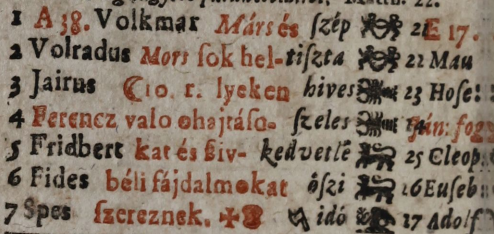 1 A 38. Volkmar Márs és szép 21 E 17.
2 Volradus Mors sok hel- tiszta 22 Mau
3 Jairus ☾ 10. r. lyeken hives 23 Hose:
4 Ferencz való ohajtáso- szeles 14 Ján: fog
5 Fridbert kat és sziv- kedvetlē 25 Cleop
6 Fides béli fájdalmokat őszi 26 Euseb
7 Spes szereznek. ✠ idő 27 Adolf